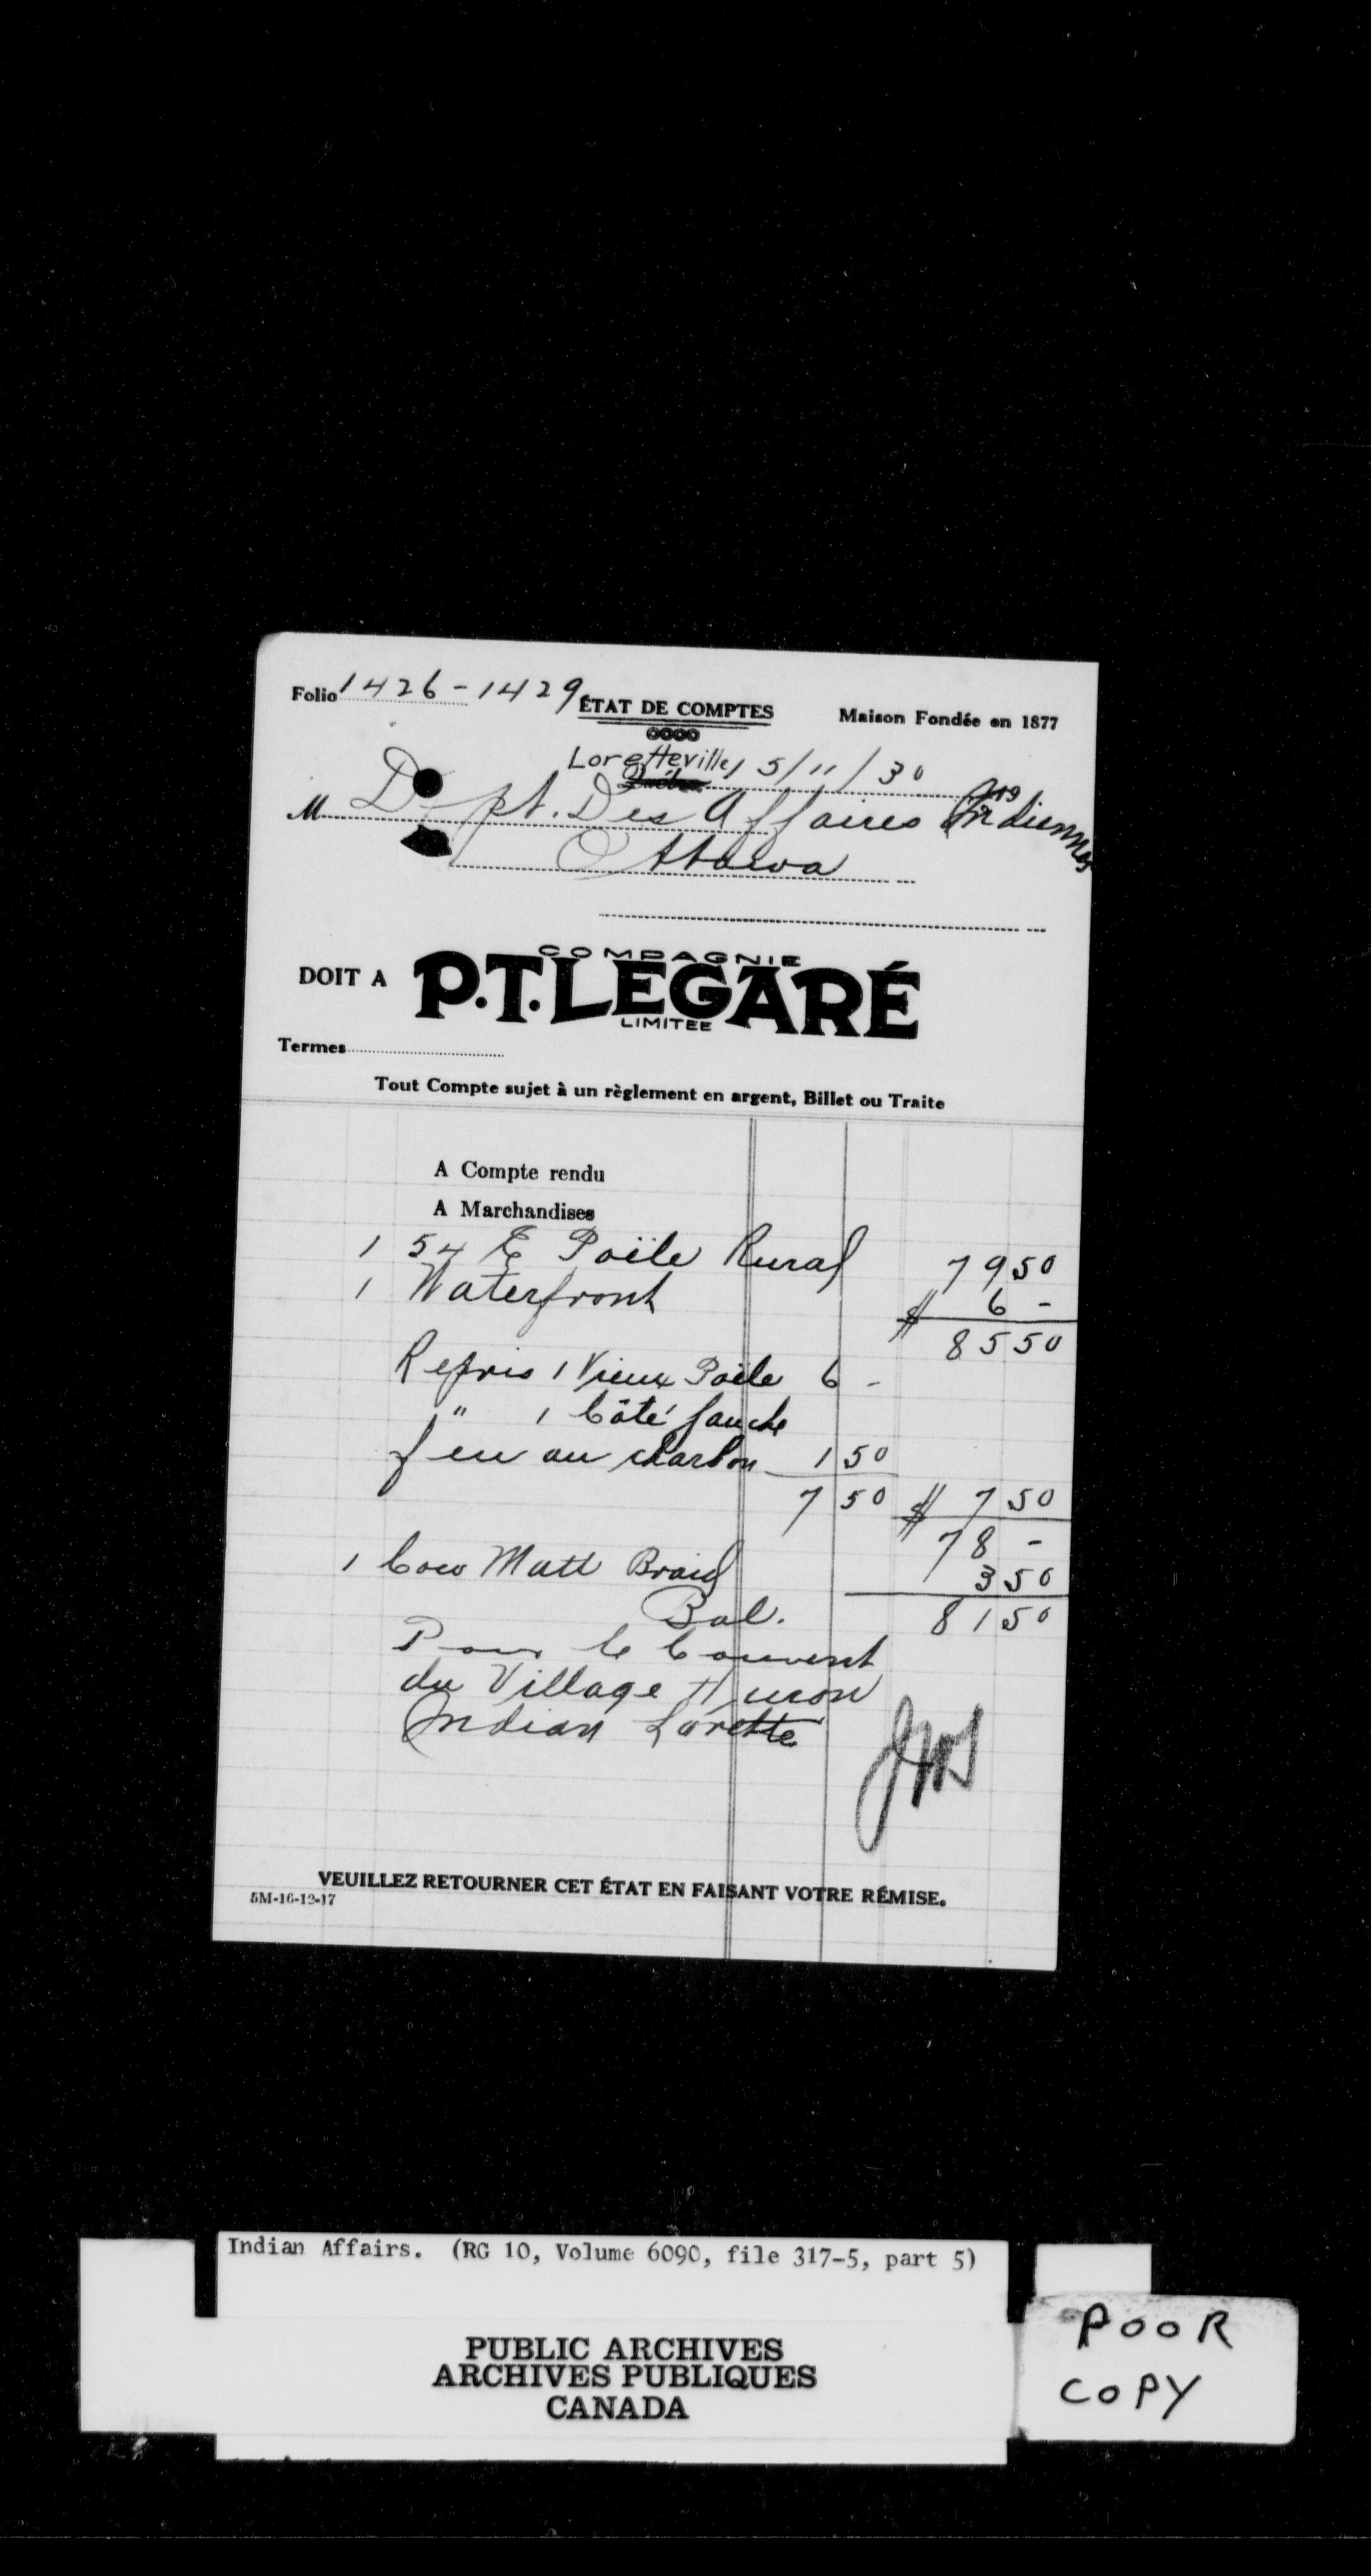 Folio 1426-1429 ÉTAT DE COMPTES Maison Fondée en 1877
Loretteville, 5/11/30
Québec 19
M Dept. Des Affaires Indiennes
Ottawa
DOIT A COMPAGNIE P.T. LEGARÉ LIMITEE
Termes
Tout Compte sujet à un règlement en argent, Billet ou Traite
A Compte rendu
A Marchandises
1 54 E Poële Rural 79 50
1 Waterfront $ 6 -
85 50
Repris 1 Vieux Poële 6 -
" 1 Côté gauche
feu au charbon 1 50
7 50 $ 7 50
78 -
1 Coco Matt Braid 3 50
Bal. 81 50
Pour le Couvent
du Village Huron
Indian Lorette
VEUILLEZ RETOURNER CET ÉTAT EN FAISANT VOTRE RÉMISE.
5M-16-12-17
Indian Affairs. (RG 10, Volume 6090, file 317-5, part 5)
PUBLIC ARCHIVES
ARCHIVES PUBLIQUES
CANADA
POOR
COPY